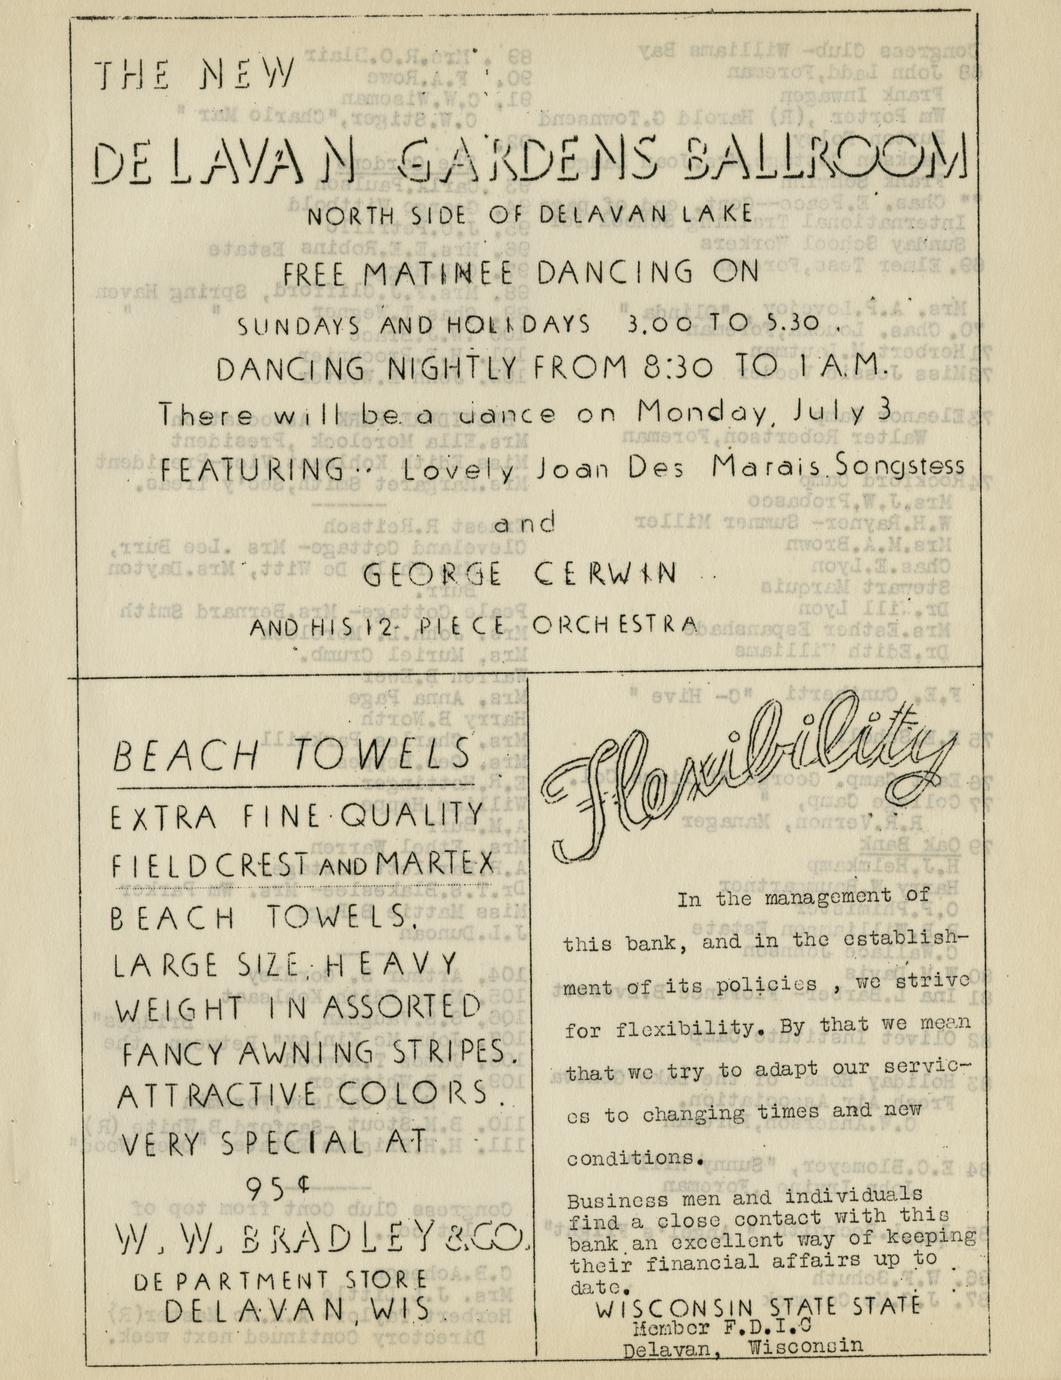 THE NEW
DELAVAN GARDENS BALLROOM
NORTH SIDE OF DELAVAN LAKE
FREE MATINEE DANCING ON
SUNDAYS AND HOLIDAYS 3.00 TO 5.30.
DANCING NIGHTLY FROM 8:30 TO 1 A.M.
There will be a dance on Monday, July 3
FEATURING·· Lovely Joan Des Marais. Songstess
and
GEORGE CERWIN
AND HIS 12- PIECE ORCHESTRA
BEACH TOWELS
EXTRA FINE QUALITY
FIELDCREST AND MARTEX
BEACH TOWELS.
LARGE SIZE, HEAVY
WEIGHT IN ASSORTED
FANCY AWNING STRIPES.
ATTRACTIVE COLORS.
VERY SPECIAL AT
95¢
W. W. BRADLEY & CO.
DEPARTMENT STORE
DELAVAN, WIS.
Flexibility
In the management of
this bank, and in the establish-
ment of its policies , we strive
for flexibility. By that we mean
that we try to adapt our servic-
es to changing times and new
conditions.
Business men and individuals
find a close contact with this
bank an excellent way of keeping
their financial affairs up to
date.
WISCONSIN STATE STATE
Member F.D.I.C
Delavan, Wisconsin